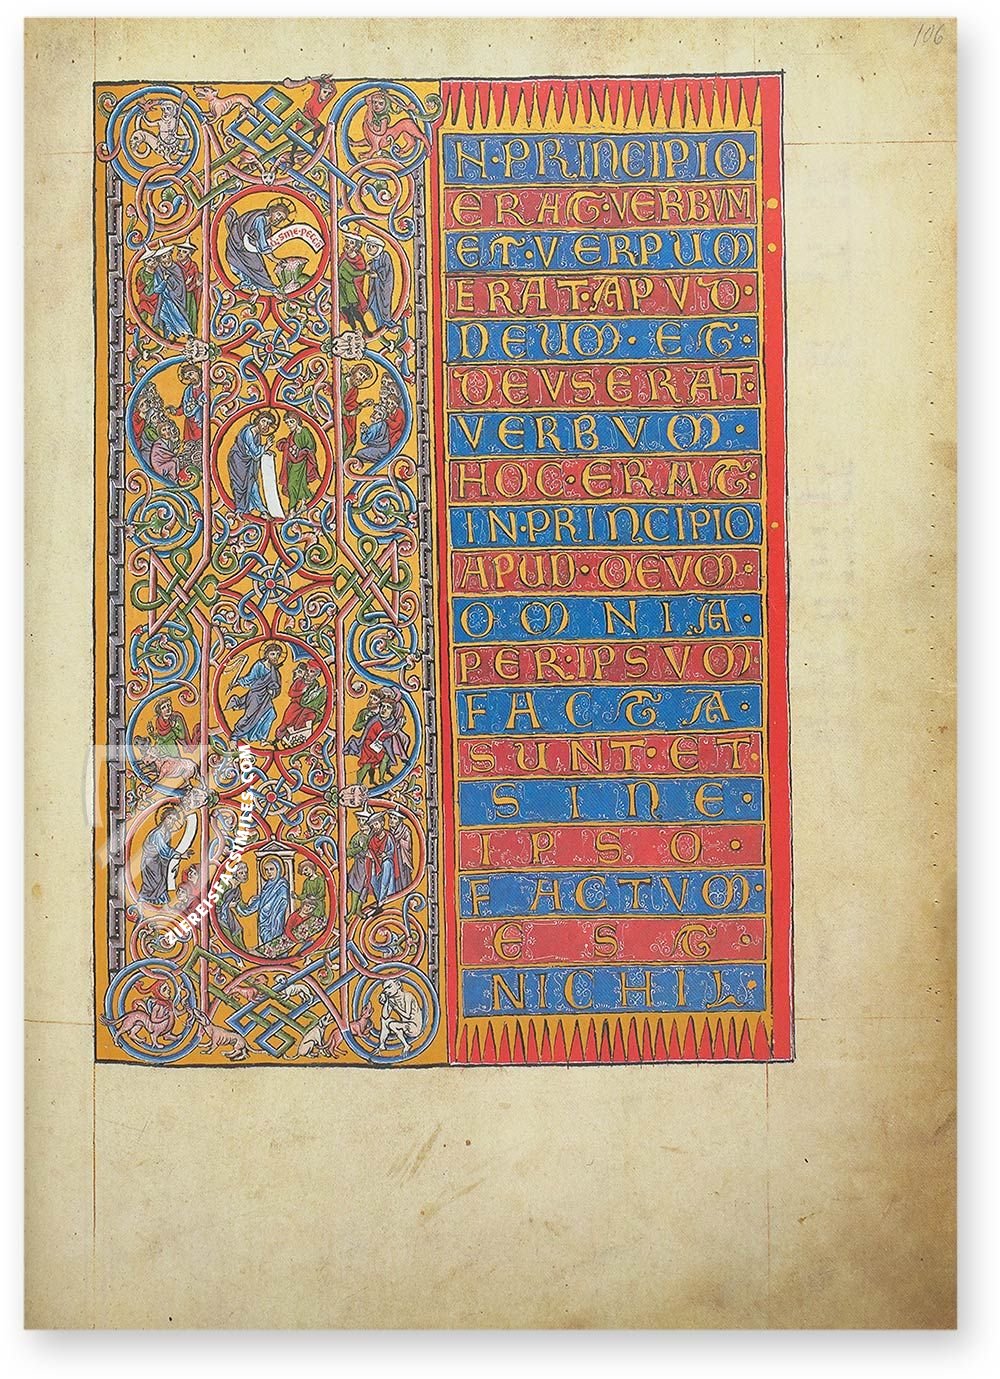 106
N·PRINCIPIO·
ERAT·VERBVM
ET·VERPUM
ERAT·APVD·
DEUM·ET·
DEVSERAT·
VERBVM·
HOC·ERAT·
IN·PRINCIPIO
APUD·DEVM·
OMNIA·
PER·IPSVM
FACTA·
SUNT·ET
SINE·
IPSO·
FACTVM·
EST·
NICHIL·
ZIEREISFACSIMILES.COM